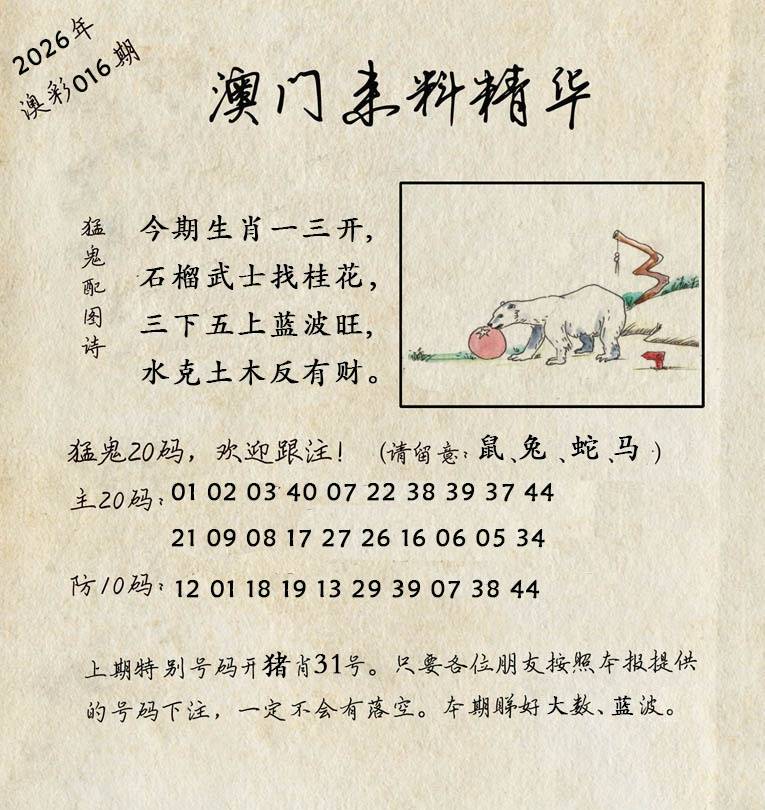 2026年
澳彩016期
澳门来料精华
猛鬼配图诗
今期生肖一三开,
石榴武士找桂花,
三下五上蓝波旺,
水克土木反有财。
猛鬼20码，欢迎跟注！（请留意：鼠、兔、蛇、马）
主20码：01 02 03 40 07 22 38 39 37 44
21 09 08 17 27 26 16 06 05 34
防10码：12 01 18 19 13 29 39 07 38 44
上期特别号码开猪肖31号。只要各位朋友按照本报提供
的号码下注，一定不会有落空。本期睇好大数、蓝波。